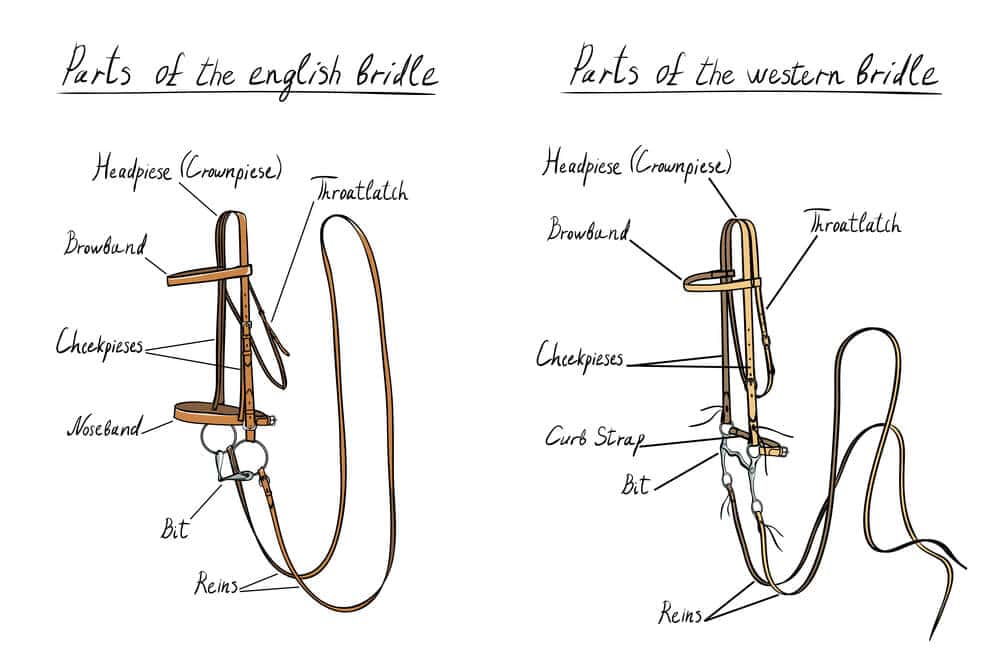 Parts of the english bridle
Headpiese (Crownpiese)
Throatlatch
Browband
Cheekpieses
Noseband
Bit
Reins
Parts of the western bridle
Headpiese (Crownpiese)
Throatlatch
Browband
Cheekpieses
Curb Strap
Bit
Reins